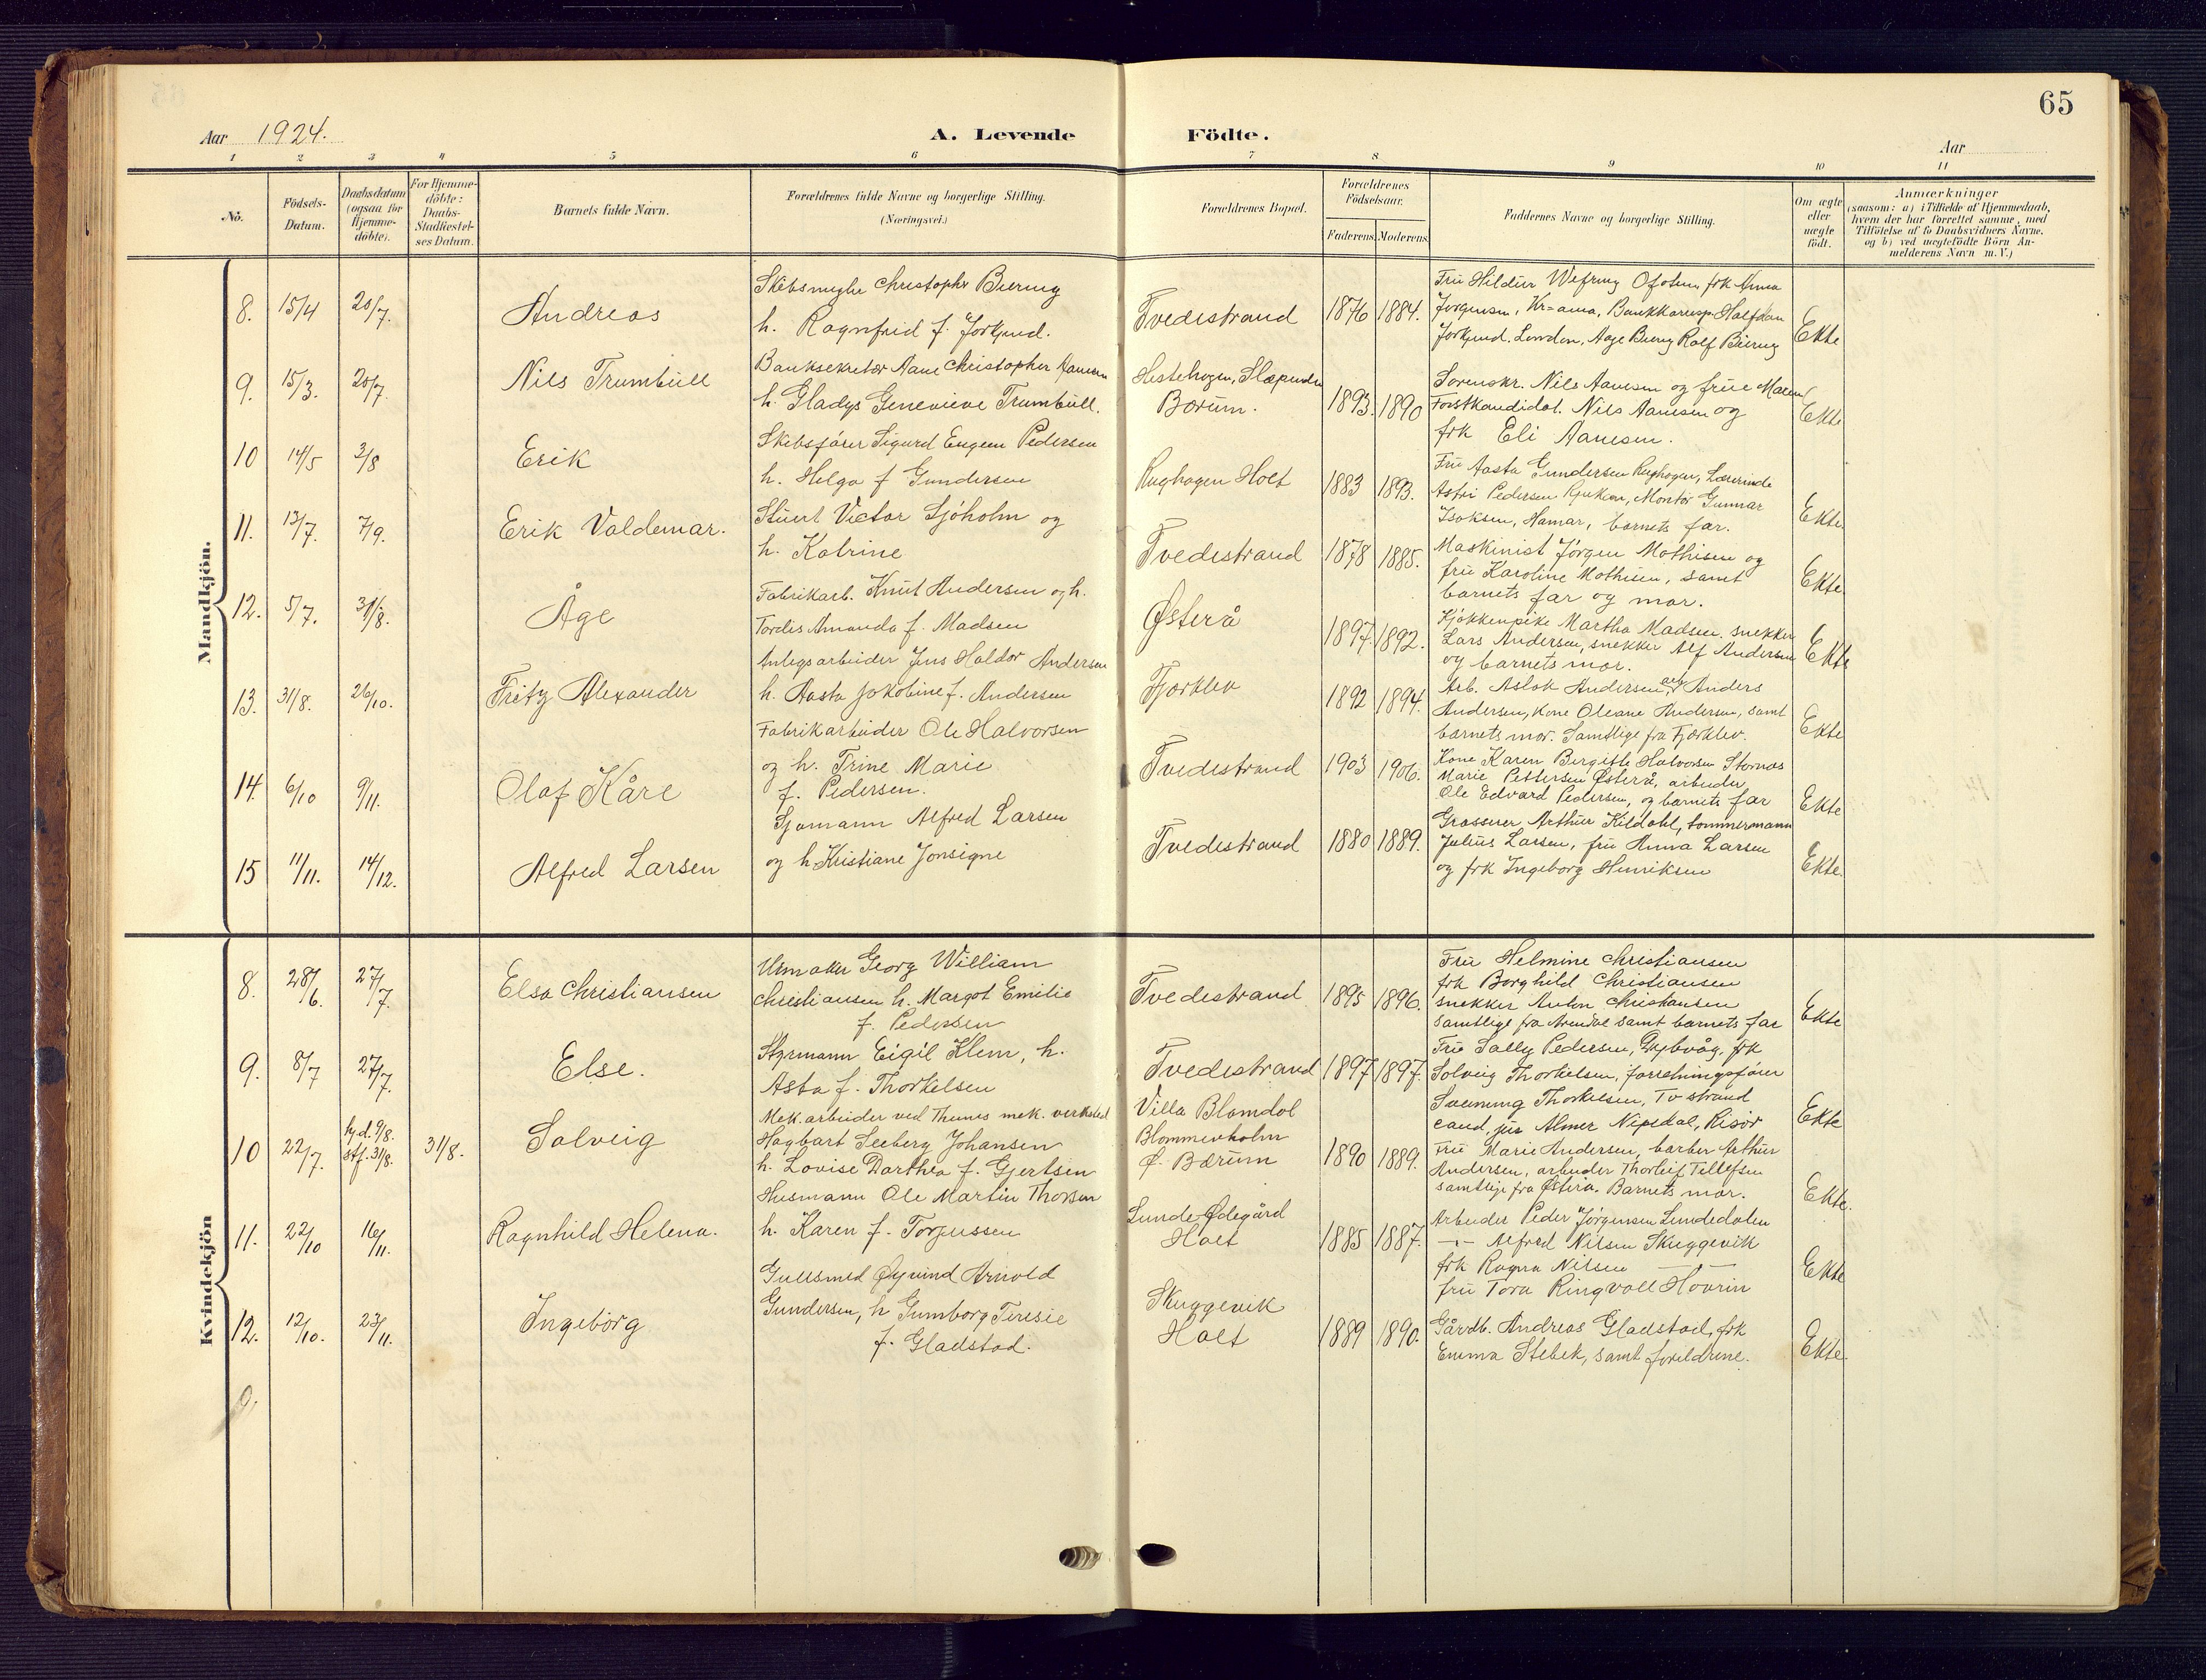 65
Aar 1924.
A. Levende Födte.
Aar
1 2 3 4 5 6 7 8 9 10 11
No.
Födsels-
Datum.
Daabsdatum
(ogsaa for
Hjemme-
döbte).
For Hjemme-
döbte:
Daabs-
Stadfæstel-
ses Datum.
Barnets fulde Navn.
Forældrenes fulde Navne og borgerlige Stilling.
(Næringsvei.)
Forældrenes Bopæl.
Forældrenes
Födselsaar.
Faderens. Moderens.
Faddernes Navne og borgerlige Stilling.
Om ægte
eller
uægte
födt.
Anmærkninger
(saasom: a) i Tilfælde af Hjemmedaab,
hvem der har forrettet samme, med
Tilföielse af to Daabsvidners Navne.
og b) ved uægtefödte Börn An-
melderens Navn m. V.)
Mandkjön.
8. 15/4 20/7. Andreas
Skibsmegler Christopher Biering
h. Ragnfrid f. Jorkjend.
Tvedestrand 1876 1884.
Fru Hildur Wefring Ofoten, frk Anna
Jørgensen, Kr=ania, Bankkaresp. Halfdan
Jorkjend. London, Aage Biering Rolf Biering
Ekte
9. 15/3. 20/7. Nils Trumbull
Banksekretær Aane Christopher Aanesen
h. Gladys Genevieve Trumbull.
Hestehagen, Slæpenden
Bærum. 1893. 1890
Sorenskr. Nils Aanesen og frue Maren
Forstkandidat. Nils Aanesen og
frk Eli Aanesen.
Ekte
10 14/5 3/8 Erik
Skibsfører Sigurd Eugen Pedersen
h. Helga f Gundersen
Rughagen Holt 1883 1893.
Fru Aasta Gundersen Rughagen, Lærerinde
Astri Pedersen Rjukan, Montør Gunnar
Isaksen, Hamar, barnets far.
Ekte.
11. 13/7. 7/9. Erik Valdemar.
Stuert Victor Sjöholm og
h. Katrine
Tvedestrand 1878 1885.
Maskinist Jörgen Mathisen og
fru Karoline Mathisen, samt
barnets far og mor.
Ekte.
12. 5/7. 31/8. Åge
Fabrikarb. Knut Andersen og h.
Tordis Amanda f. Madsen
Østerå 1897. 1892.
Kjøkkenpike Martha Madsen. snekker
Lars Andersen, snekker Alf Andersen
og barnets mor.
Ekte
13. 31/8. 26/10. Fritz Alexander
Anlegsarbeider Jens Haldor Andersen
h. Aasta Jakobine f. Andersen
Fjærklev 1892 1894.
Arb. Aslak Andersen, arb Anders
Andersen, kone Oleane Andersen, samt
barnets mor. Samtlige fra Fjærklev.
Ekte
14. 6/10 9/11. Olaf Kåre
Fabrikarbeider Ole Halvorsen
og h. Trine Marie
f. Pedersen.
Tvedestrand 1903 1906.
Kone Karen Birgitte Halvorsen
Marie Pettersen Østerå, arbeider
Ole Edvard Pedersen, og barnets far
Ekte
15 11/11. 14/12. Alfred Larsen
Sjømann Alfred Larsen
og h. Kristiane Jonsigne
Tvedestrand 1880 1889.
Grosserer Arthur Kildahl, tømmermann
Julius Larsen, fru Anna Larsen
og frk Ingeborg Henriksen
Ekte.
Kvindekjön
8. 28/6. 27/7. Elsa Christiansen
Urmaker Georg William
Christiansen h. Margot Emilie
f. Pedersen
Tvedestrand 1895 1896.
Fru Helmine Christiansen
frk Borghild Christiansen
snekker Anton Christiansen
samtlige fra Arendal samt barnets far
Ekte
9. 8/7 27/7. Else.
Styrmann Eigil Klem, h.
Asta f. Thorkelsen
Tvedestrand 1897 1897.
Fru Sally Pedersen, Dybvåg. frk
Solveig Thorkelsen, forretningsfører
Svenning Thorkelsen, Tvstrand
cand. jur Almer Nipedal, Risör
Ekte
10 22/7. hj.d. 9/8.
stf. 31/8. 31/8. Solveig
Mek. arbeider ved Thunes mek. verksted
Hagbart Seeberg Johansen
h. Lovise Darthea f. Gjertsen
Villa Blomdal
Blommenholm
Ø. Bærum 1890 1889.
Fru Marie Andersen, barber Arthur
Andersen, arbeider Thorleif Tellefsen
samtlige fra Østerå. Barnets mor.
Ekte.
11. 22/10 16/11. Ragnhild Helena.
Husmann Ole Martin Thorsen
h. Karen f. Torjussen
Lunde-Ødegård
Holt 1885 1887.
Arbeider Peder Jørgensen Lundedalen
-"- Alfred Nilsen Skuggevik
frk Ragna Nilsen -"-
fru Tora Ringvoll Hovrin
Ekte
12. 12/10. 23/11. Ingeborg
Gullsmed Øyvind Arnold
Gundersen, h Gunborg Teresie
f. Gladstad.
Skuggevik
Holt 1889 1890.
Gårdb. Andreas Gladstad, frk
Emma Stebek, samt foreldrene.
Ekte.
9.